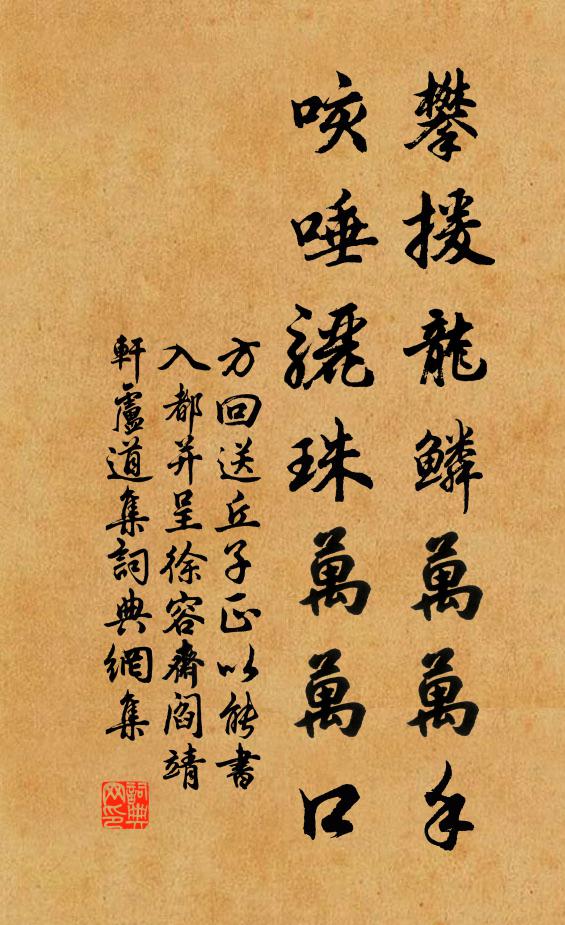 攀援龍鱗萬萬手
咳唾驪珠萬萬口
方回送丘子正以能書
入都并呈徐容齋閻靖
軒盧道集詞典網集
詞典網印